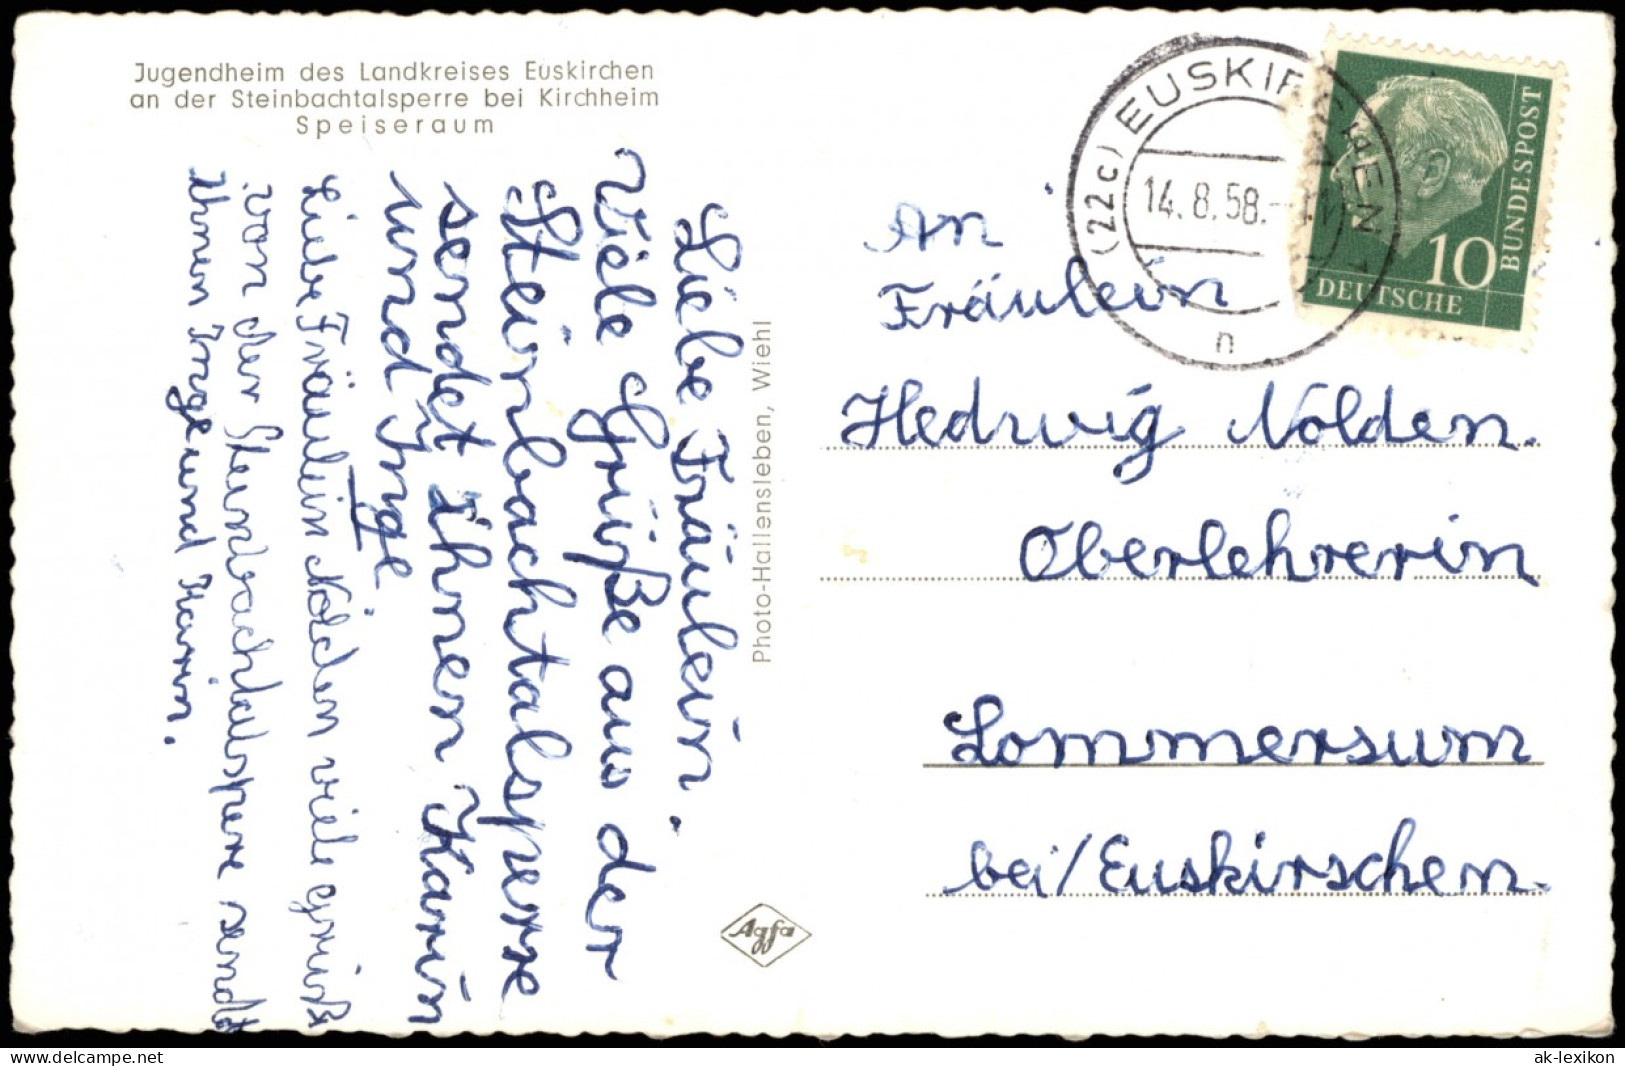 Jugendheim des Landkreises Euskirchen
an der Steinbachtalsperre bei Kirchheim
Speiseraum
Liebe Fräulein.
Viele Grüße aus der
Steinbachtalsperre
sendet Ihnen Karin
und Inge.
Liebe Fräulein Nolden viele grüße
von der Steinbachtalsperre sendet
Ihnen Inge und Karin.
Photo-Hallensleben, Wiehl
Agfa
(22c) EUSKIRCHEN 1
14. 8. 58.
n
DEUTSCHE
BUNDESPOST
10
An
Fräulein
Hedwig Nolden.
Oberlehrerin
Lommersum
bei/Euskirschen.
www.delcampe.net
ak-lexikon